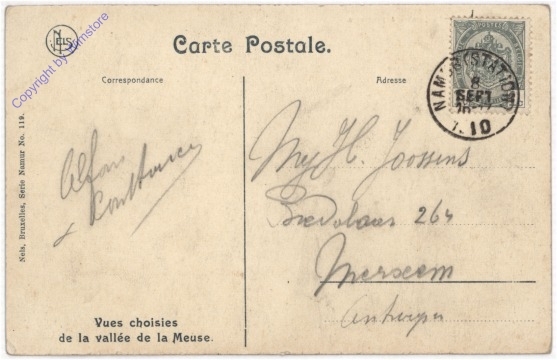 NELS
Copyright by oldimstore
Carte Postale.
Correspondance
Adresse
NAMUR (STATION)
8
SEPT
10
My H. Joossens
Bredabaan 264
Merxem
Antwerpen
Alfons
&
Constance
Nels, Bruxelles, Série Namur No. 119.
Vues choisies
de la vallée de la Meuse.